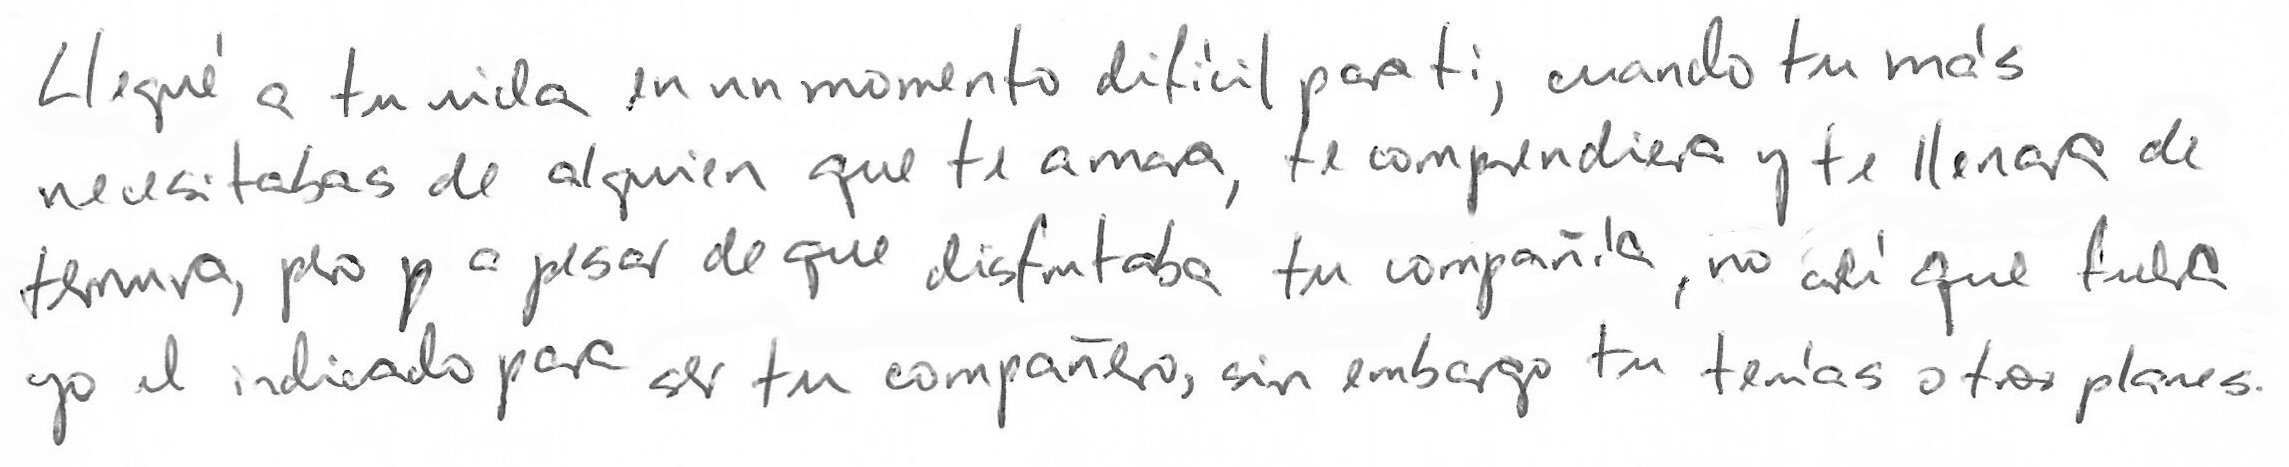 Llegué a tu vida en un momento difícil para ti, cuando tu más
necesitabas de alguien que te amara, te comprendiera y te llenara de
ternura, pero p a pesar de que disfrutaba tu compañía, no creí que fuera
yo el indicado para ser tu compañero, sin embargo tu tenías otros planes.